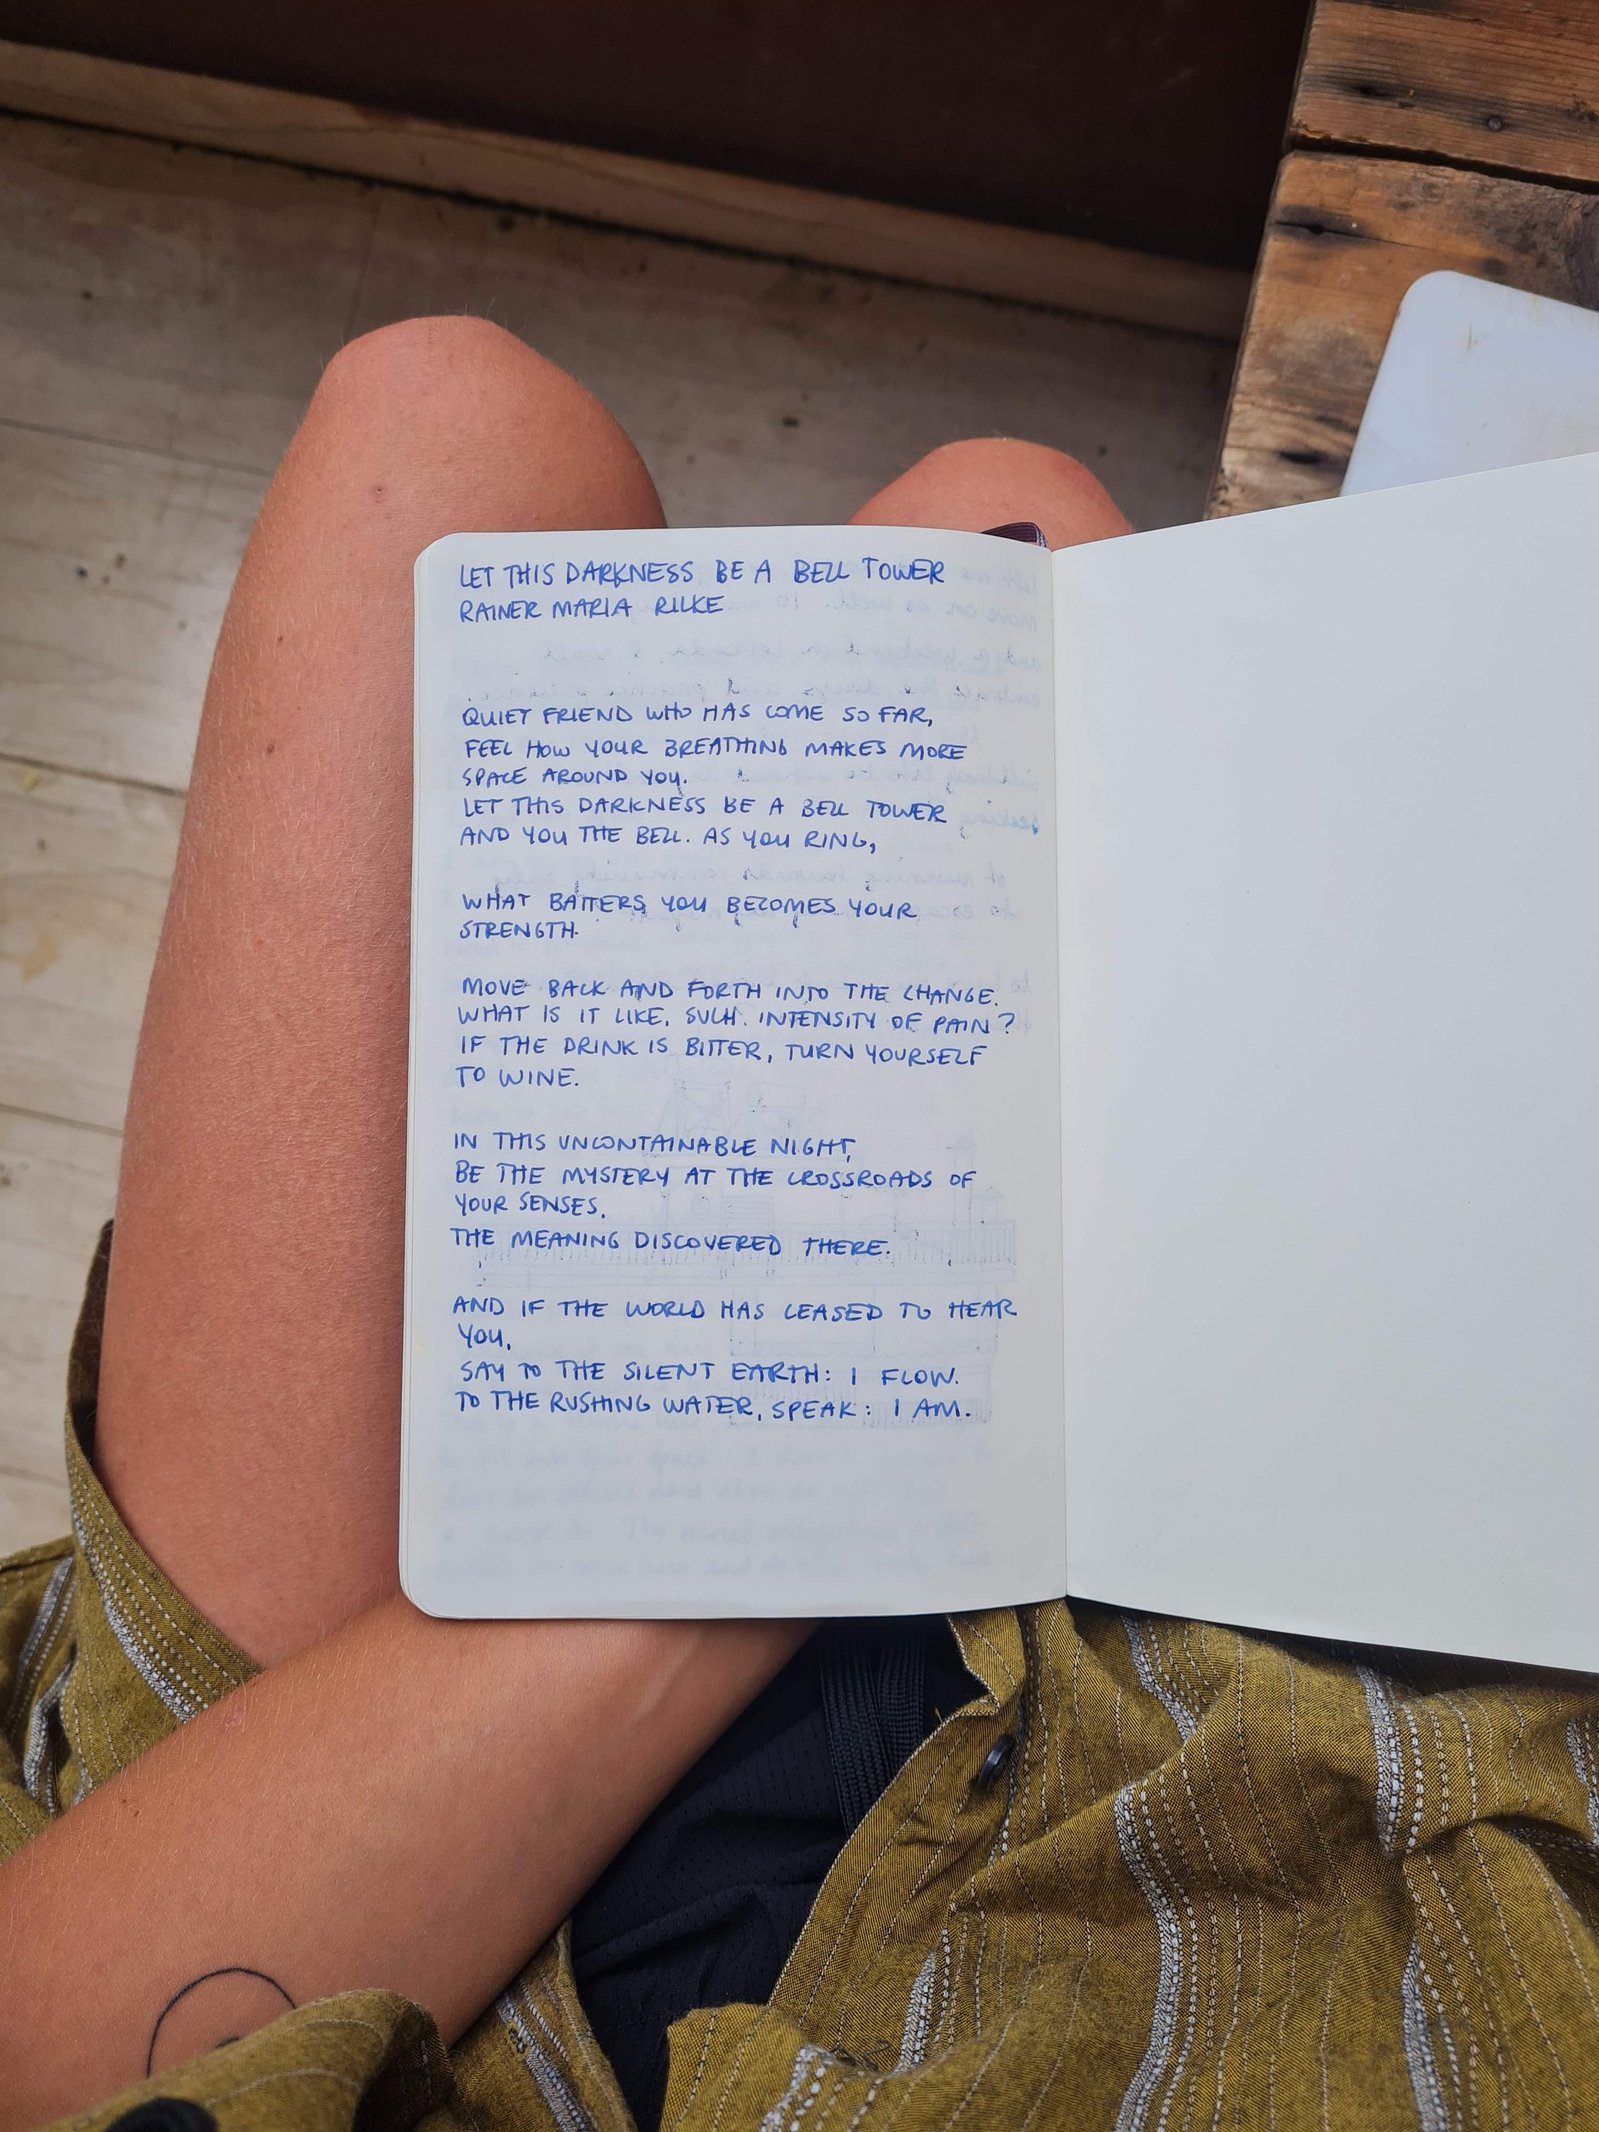 LET THIS DARKNESS BE A BELL TOWER
RAINER MARIA RILKE
QUIET FRIEND WHO HAS COME SO FAR,
FEEL HOW YOUR BREATHING MAKES MORE
SPACE AROUND YOU.
LET THIS DARKNESS BE A BELL TOWER
AND YOU THE BELL. AS YOU RING,
WHAT BATTERS YOU BECOMES YOUR
STRENGTH.
MOVE BACK AND FORTH INTO THE CHANGE.
WHAT IS IT LIKE, SUCH INTENSITY OF PAIN?
IF THE DRINK IS BITTER, TURN YOURSELF
TO WINE.
IN THIS UNCONTAINABLE NIGHT,
BE THE MYSTERY AT THE CROSSROADS OF
YOUR SENSES,
THE MEANING DISCOVERED THERE.
AND IF THE WORLD HAS CEASED TO HEAR
YOU,
SAY TO THE SILENT EARTH: I FLOW.
TO THE RUSHING WATER, SPEAK: I AM.